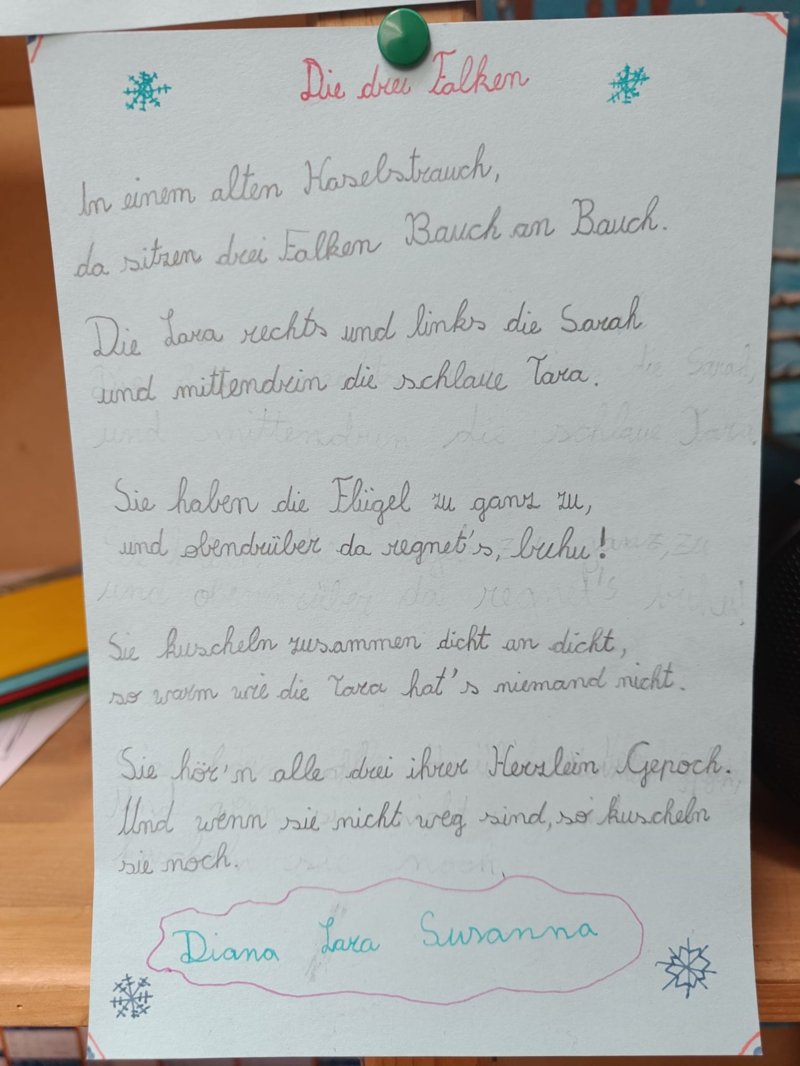 Die drei Falken
In einem alten Haselstrauch,
da sitzen drei Falken Bauch an Bauch.
Die Lara rechts und links die Sarah
und mittendrin die schlaue Tara.
Sie haben die Flügel zu ganz zu,
und obendrüber da regnet's, buhu!
Sie kuscheln zusammen dicht an dicht,
so warm wie die Tara hat's niemand nicht.
Sie hör'n alle drei ihrer Herzlein Gepoch.
Und wenn sie nicht weg sind, so kuscheln
sie noch.
Diana Lara Susanna